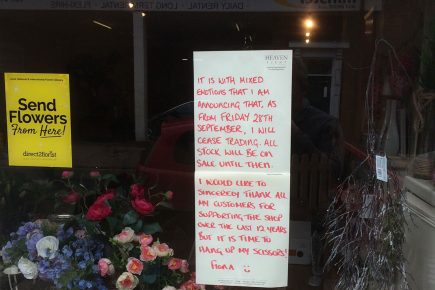 DAILY RENTAL · LONG TERM RENTAL · FLEXI-HIRE
HEAVEN
SCENT
IT IS WITH MIXED
EMOTIONS THAT I AM
ANNOUNCING THAT, AS
FROM FRIDAY 28TH
SEPTEMBER, I WILL
CEASE TRADING. ALL
STOCK WILL BE ON
SALE UNTIL THEN.
I WOULD LIKE TO
SINCERELY THANK ALL
MY CUSTOMERS FOR
SUPPORTING THE SHOP
OVER THE LAST 12 YEARS
BUT IT IS TIME TO
HANG UP MY SCISSORS!
FIONA
Send
Flowers
From Here!
direct2florist